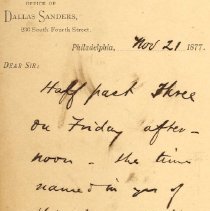 OFFICE OF
DALLAS SANDERS,
230 South Fourth Street.
Philadelphia, Nov 21 1877.
DEAR SIR:
Half past Three
on Friday after-
noon - the time
named in yrs of